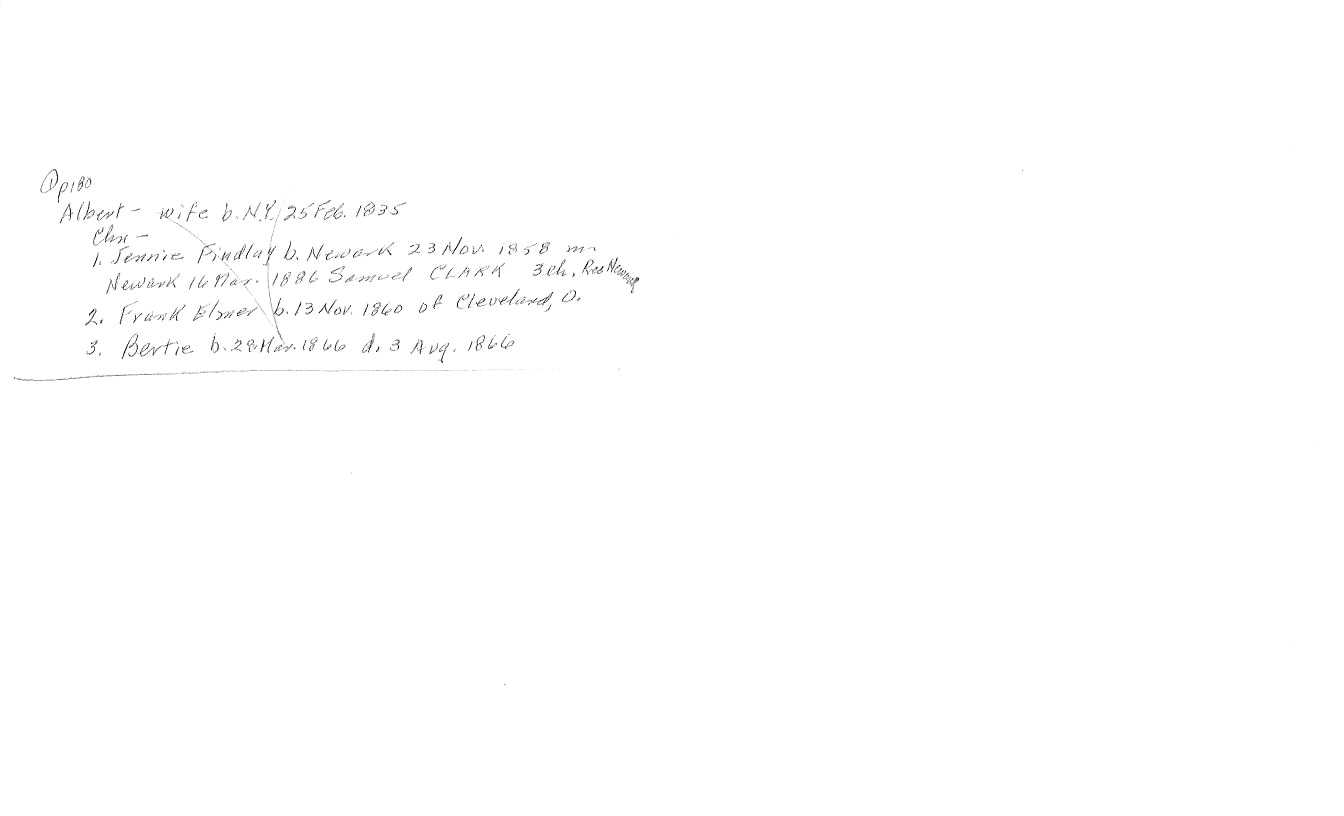 ① p180
Albert - wife b. N.Y. 25 Feb. 1835
Chn -
1. Jennie Findlay b. Newark 23 Nov. 1858 m
Newark 16 Mar. 1886 Samuel CLARK 3 ch. Res Newark
2. Frank Elmer b. 13 Nov. 1860 of Cleveland, O.
3. Bertie b. 28 Mar. 1866 d. 3 Aug. 1866